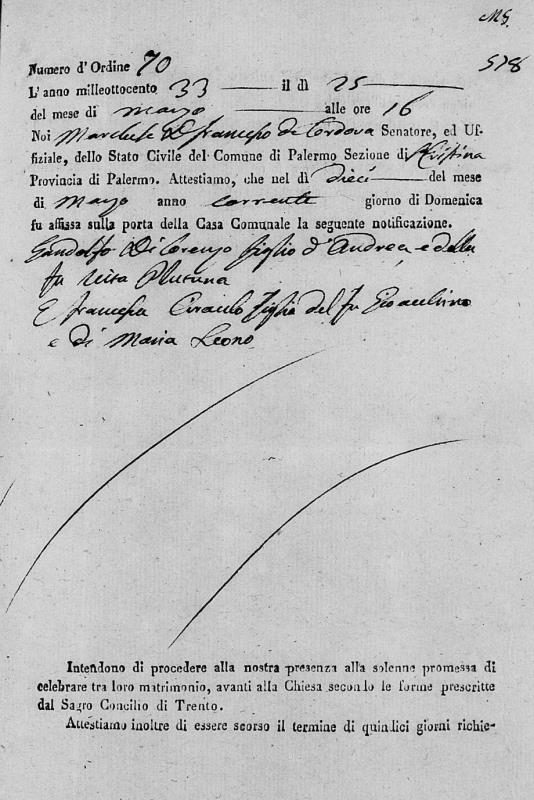 MS.
578
Numero d' Ordine 70
L' anno milleottocento 33 il dì 25
del mese di Marzo alle ore 16
Noi Marchese D. Francesco di Cordova Senatore, ed Uf-
fiziale, dello Stato Civile del Comune di Palermo Sezione di Cristina
Provincia di Palermo. Attestiamo, che nel dì dieci del mese
di Marzo anno corrente giorno di Domenica
fu affissa sulla porta della Casa Comunale la seguente notificazione.
Gandolfo Di Lorenzo figlio d'Andrea, e della
fu Rita
E Francesca Ciraulo figlia del fu Gioacchino
e di Maria Leone
Intendono di procedere alla nostra presenza alla solenne promessa di
celebrare tra loro matrimonio, avanti alla Chiesa secondo le forme prescritte
dal Sagro Concilio di Trento.
Attestiamo inoltre di essere scorso il termine di quindici giorni richie-